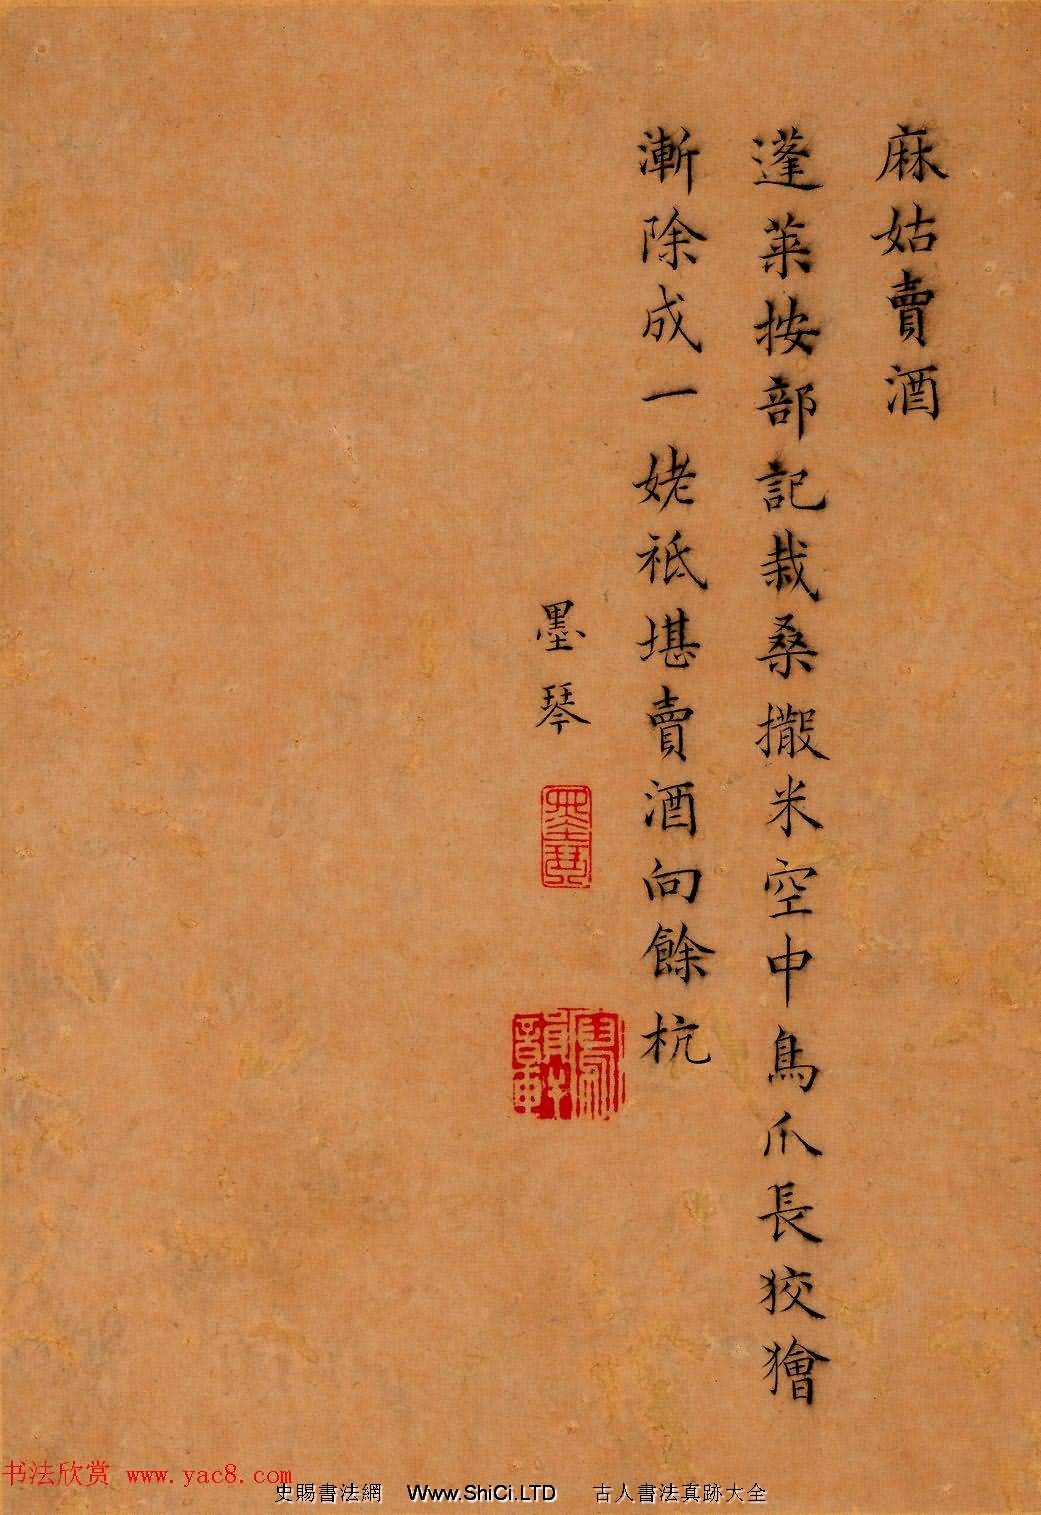 麻姑賣酒
蓬萊按部記栽桑撒米空中鳥爪長狡獪
漸除成一姥祗堪賣酒向餘杭
墨琴
墨琴
书法欣赏 www.yac8.com
史賜書法網 Www.ShiCi.LTD 古人書法真跡大全